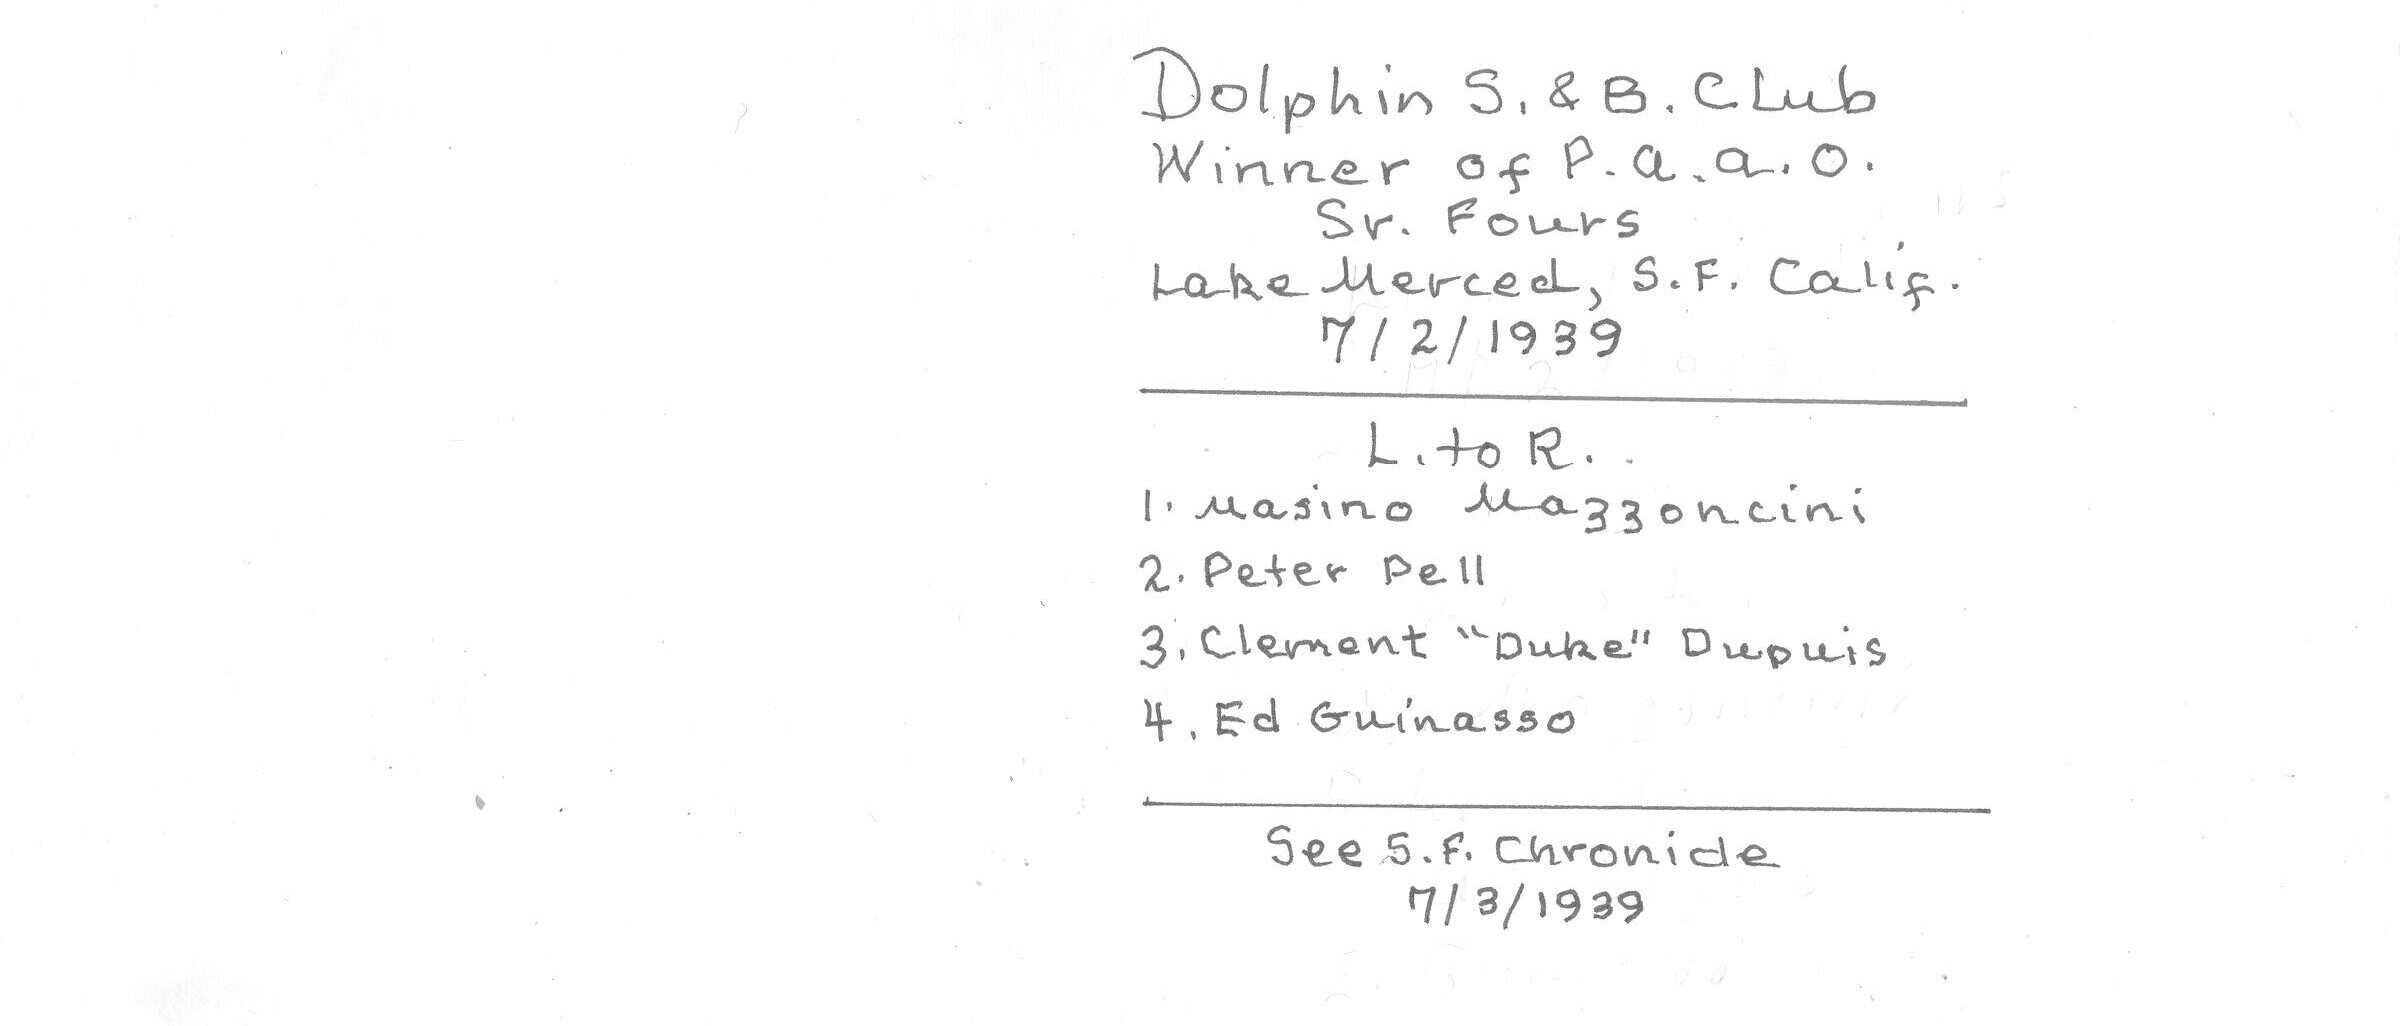 Dolphin S. & B. Club
Winner of P.a.a.O.
Sr. Fours
Lake Merced, S.F. Calif.
7/2/1939
L. to R.
1. Masino Mazzoncini
2. Peter Dell
3. Clement "Duke" Dupuis
4. Ed Guinasso
See S.F. Chronicle
7/3/1939